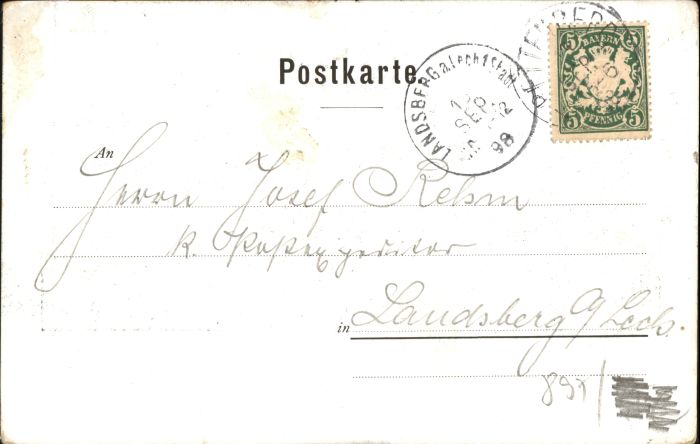 Postkarte.
LANDSBERG a. Lech Stadt
SEP.
98
BAYERN
5 5
PFENNIG
5 5
An
Herrn Josef Rehm
K. Postexpeditor
in Landsberg a/Lech.
89x